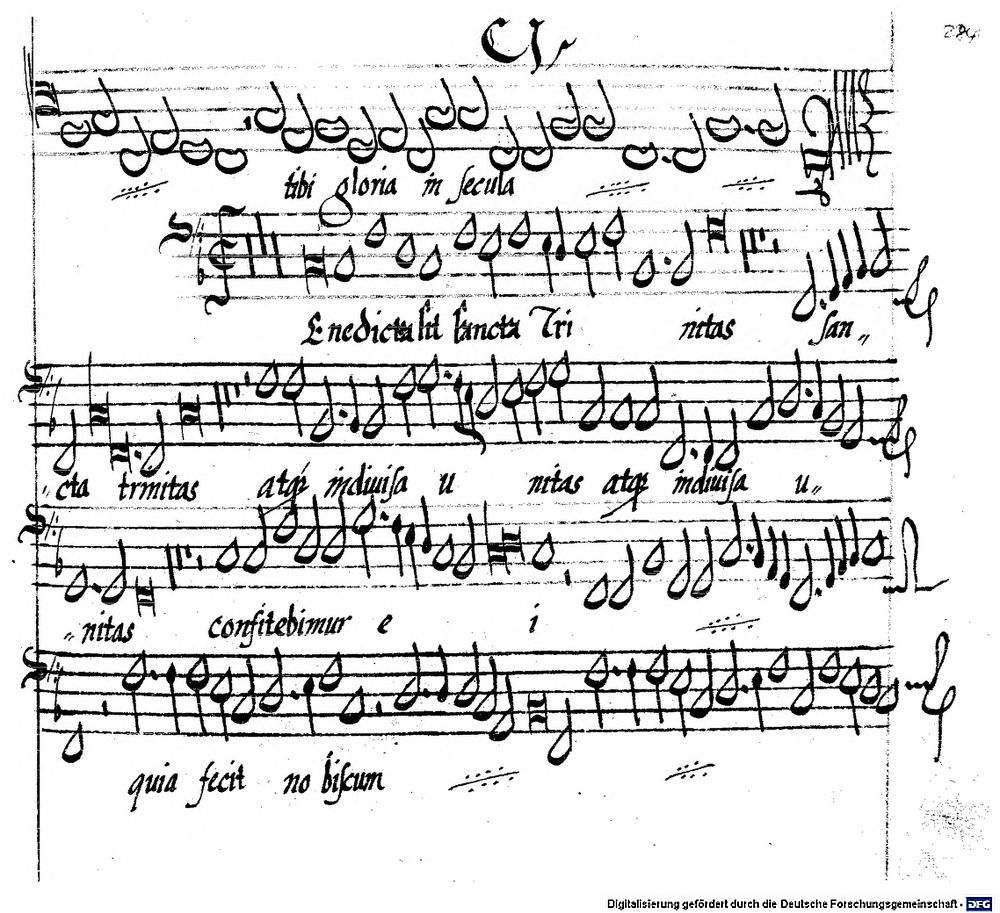 CI.
284
tibi gloria in secula
Enedicta sit sancta Tri nitas san„
„cta trinitas atq; indiuisa u nitas atq; indiuisa u„
„nitas confitebimur e i
quia fecit no biscum
Digitalisierung gefördert durch die Deutsche Forschungsgemeinschaft - DFG